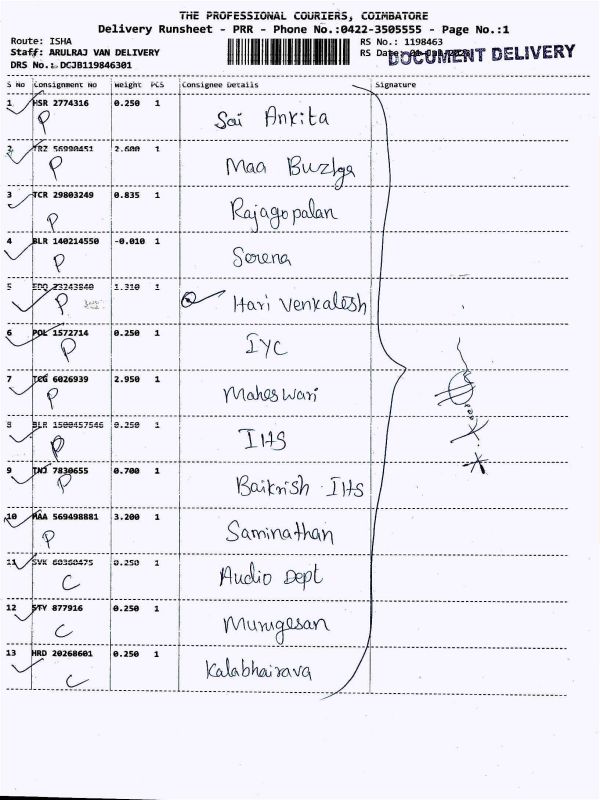 THE PROFESSIONAL COURIERS, COIMBATORE
Delivery Runsheet - PRR - Phone No.:0422-3505555 - Page No.:1
Route: ISHA RS No.: 1198463
Staff: ARULRAJ VAN DELIVERY RS Date:
DOCUMENT DELIVERY
DRS No.: DCJB119846301
S No Consignment No Weight PCS Consignee Details Signature
1 HSR 2774316 0.250 1 Sai Ankita
P
2 TRZ 56990451 2.600 1 Maa
P
3 TCR 29803249 0.835 1 Rajagopalan
P
4 BLR 140214550 -0.010 1 Serena
P
5 EDQ 23243840 1.310 1 Hari Venkalesh
P
6 POL 1572714 0.250 1 IYC
P
7 TCG 6026939 2.950 1 Maheswari
P
8 BLR 1500457546 0.250 1 IHS
P
9 TNJ 7830655 0.700 1 Baikrish IHS
P
10 MAA 569498881 3.200 1 Saminathan
P
11 SVK 60360475 0.250 1 Audio Dept
C
12 STY 877916 0.250 1 Murugesan
C
13 HRD 20268601 0.250 1 Kalabhairava
C